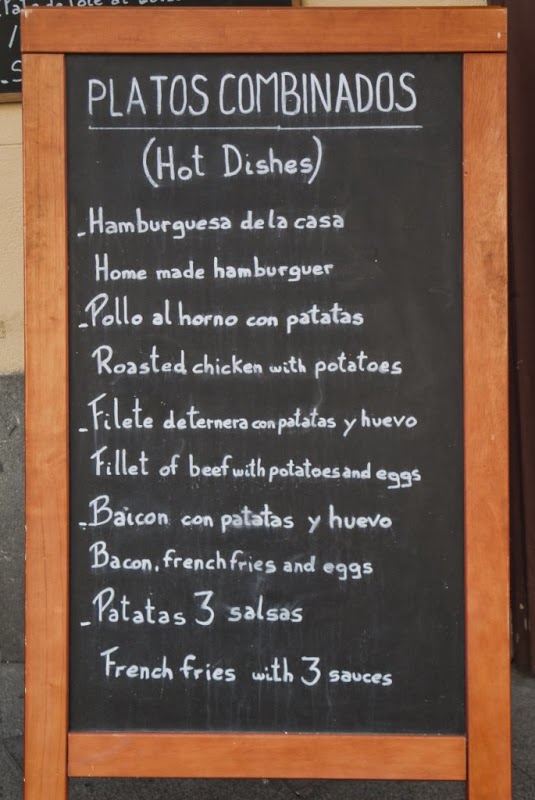 PLATOS COMBINADOS
(Hot Dishes)
-Hamburguesa de la casa
Home made hamburguer
-Pollo al horno con patatas
Roasted chicken with potatoes
-Filete de ternera con patatas y huevo
Fillet of beef with potatoes and eggs
-Baicon con patatas y huevo
Bacon, french fries and eggs
-Patatas 3 salsas
French fries with 3 sauces